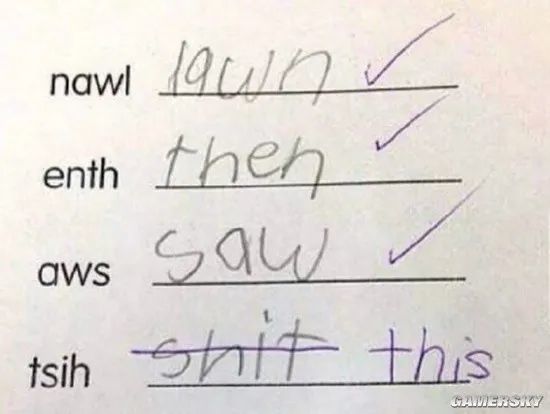 nawl lawn
enth then
aws saw
tsih shit this
GAMERSKY